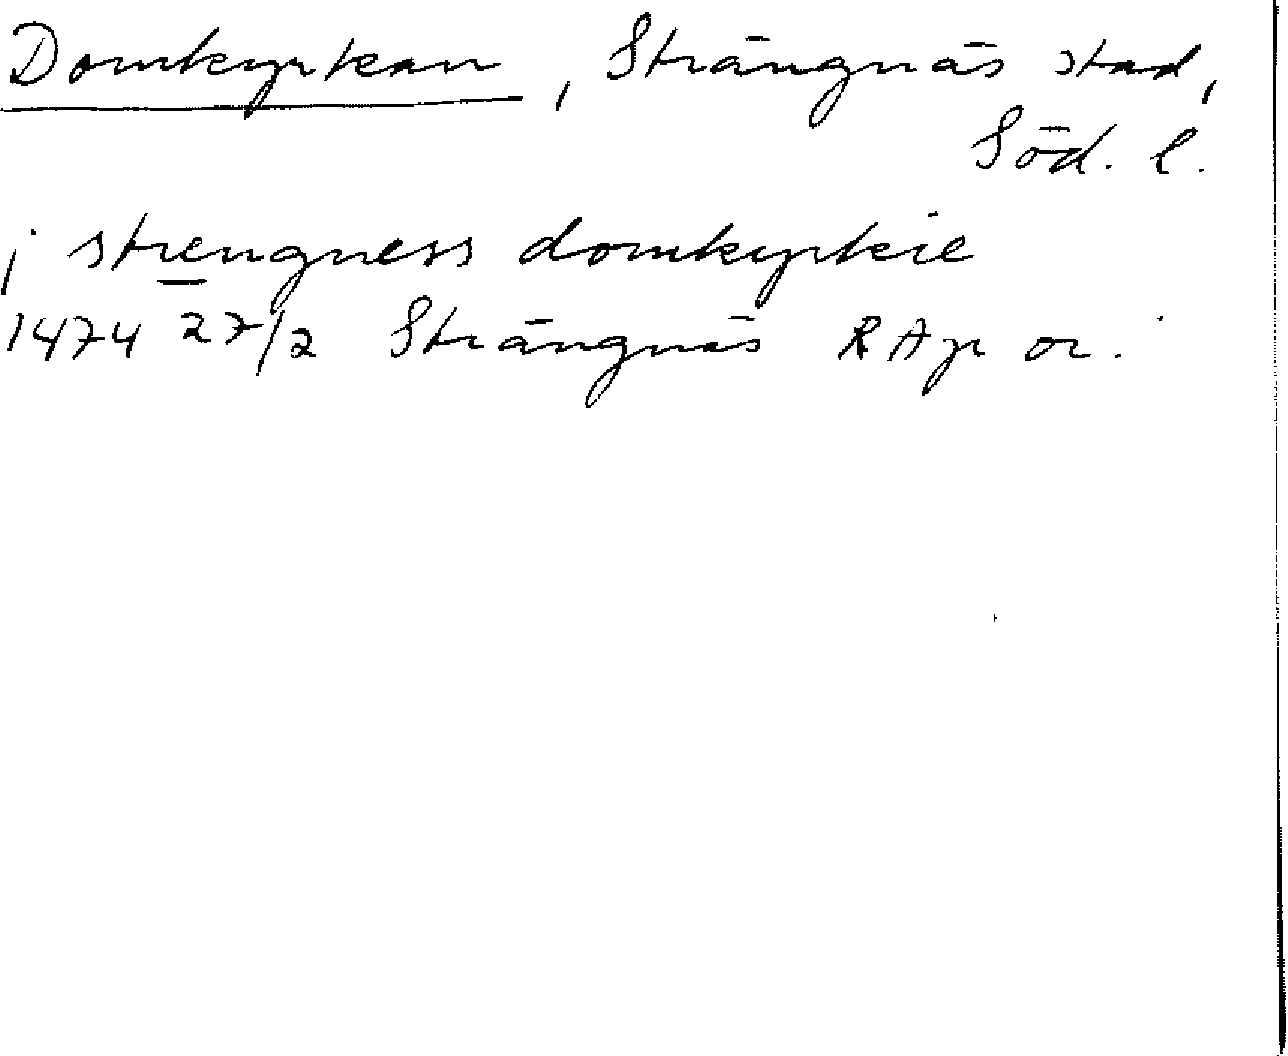 Domkyrkan, Strängnäs stad,
Söd. l.
j strengness domkyrkie
1474 27/2 Strängnäs RAp or.